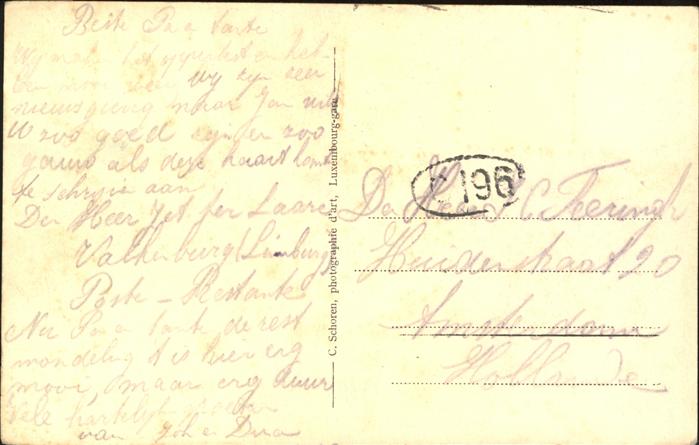 Beste Pa en tante
Wij maken het opperbest en het
een mooi weer wij zijn zeer
nieuwsgierig naar Jan wil
U zoo goed zijn en zoo
gauw als deze kaart komt
te schrijven aan
Den Heer ter Laare
Valkenburg (Limburg)
Poste - Restante
Nu Pa en tante de rest
mondeling t is hier erg
mooi, maar erg duur
Vele hartelijk
van Joh en
C. Schoren, photographie d'art, Luxembourg-gare
196
De Heer H C Teeringh
Heidestraat 20
Amsterdam
Hollande